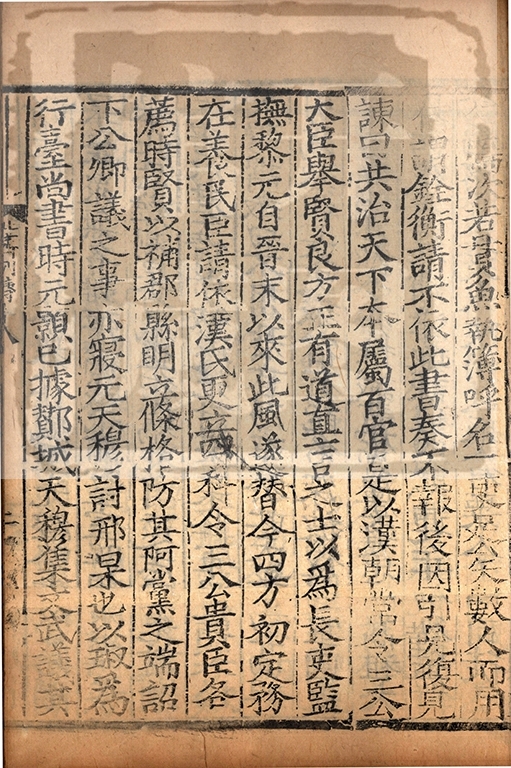 次若貫魚執簿呼名一吏足矣數人而用
謂銓衡請不依此書奏不報後因引見復見
諫曰共治天下本屬百官是以漢朝常令三公
大臣舉賢良方正有道直言之士以爲長吏監
撫黎元自晉末以來此風遂替今四方初定務
在養民臣請依漢氏更立四科令三公貴臣各
薦時賢以補郡縣明立條格防其阿黨之端詔
下公卿議之事亦寢元天穆討邢杲也以琡爲
行臺尚書時元顥已據酇城天穆集文武議其